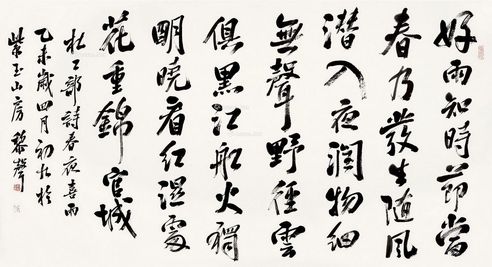 好雨知時節當
春乃發生隨風
潛入夜潤物細
無聲野徑雲
俱黑江船火獨
明曉看紅濕處
花重錦官城
杜工部詩春夜喜雨
乙未歲四月初九於
紫玉山房黎聲